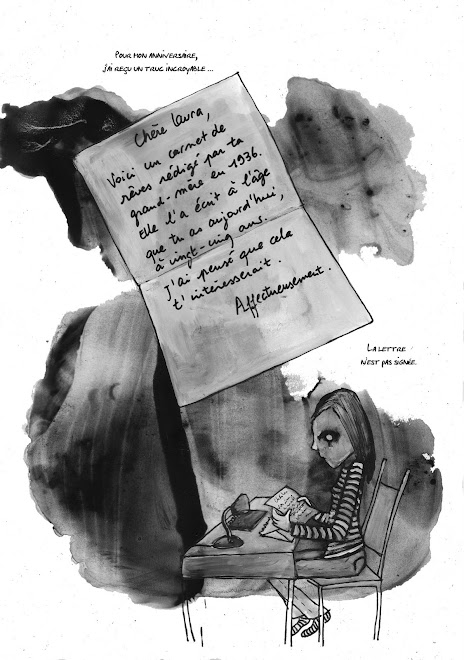 POUR MON ANNIVERSAIRE,
J'AI REÇU UN TRUC INCROYABLE...
Chère Laura,
Voici un carnet de
rêves rédigé par ta
grand-mère en 1936.
Elle l'a écrit à l'âge
que tu as aujourd'hui,
à vingt-cinq ans.
J'ai pensé que cela
t'intéresserait.
Affectueusement.
LA LETTRE
N'EST PAS SIGNÉE.